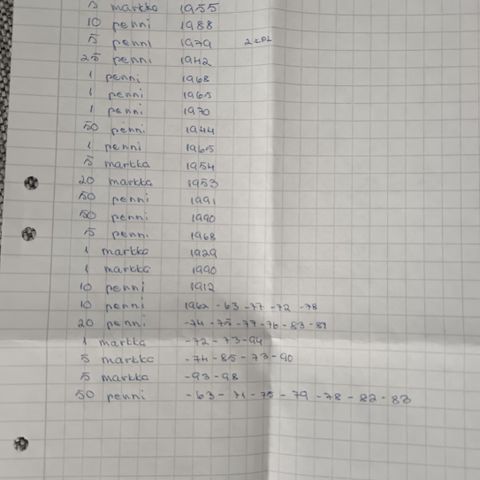 5 markka 1955
10 penni 1988
5 penni 1979 2 kpl
25 penni 1942
1 penni 1968
1 penni 1965
1 penni 1970
50 penni 1944
1 penni 1965
5 markka 1954
20 markka 1953
50 penni 1991
50 penni 1990
5 penni 1968
1 markka 1929
1 markka 1990
10 penni 1912
10 penni 1962 - 63 - 77 - 72 - 78
20 penni -74 - 75 - 77 - 76 - 83 - 89
1 markka -72 - 73 - 94
5 markka -74 - 85 - 73 - 90
5 markka -93 - 98
50 penni -63 - 71 - 75 - 79 - 78 - 82 - 83